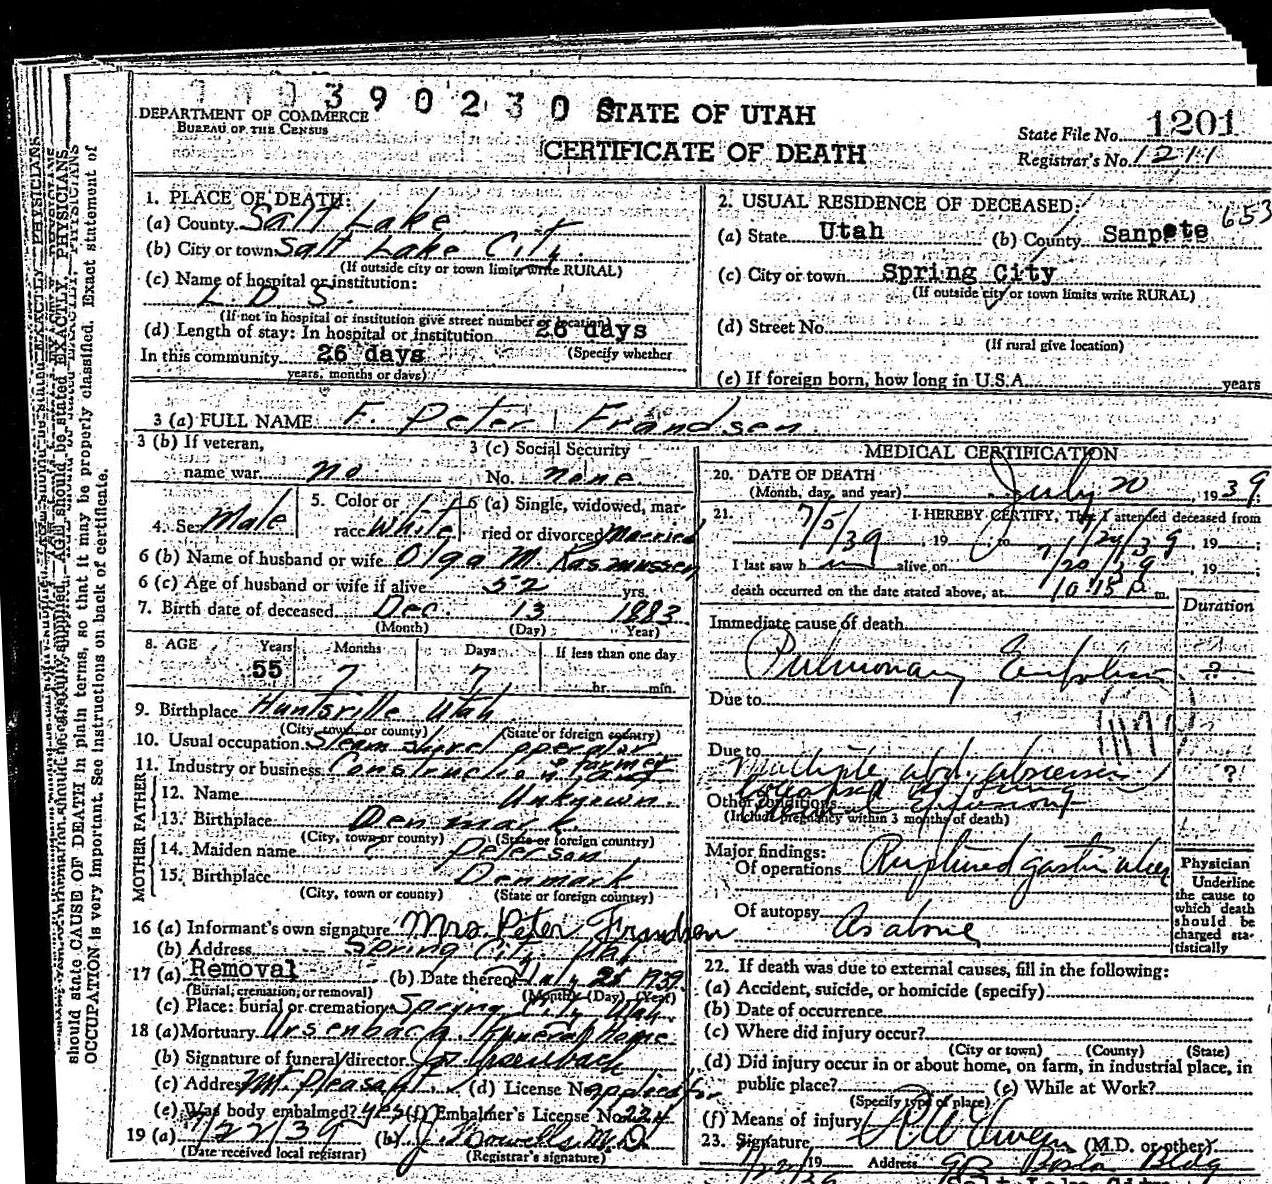 3 9 0 2 3 0
DEPARTMENT OF COMMERCE
BUREAU OF THE CENSUS
STATE OF UTAH
CERTIFICATE OF DEATH
State File No. 1201
Registrar's No. 1211
should state CAUSE OF DEATH in plain terms, so that it may be properly classified. Exact statement of
OCCUPATION is very important. See instructions on back of certificate.
1. PLACE OF DEATH:
(a) County Salt Lake
(b) City or town Salt Lake City.
(If outside city or town limits write RURAL)
(c) Name of hospital or institution:
L D S.
(If not in hospital or institution give street number or location)
(d) Length of stay: In hospital or institution 26 days
(Specify whether
In this community 26 days
years, months or days)
2. USUAL RESIDENCE OF DECEASED: 653
(a) State Utah (b) County Sanpete
(c) City or town Spring City
(If outside city or town limits write RURAL)
(d) Street No.
(If rural give location)
(e) If foreign born, how long in U.S.A. years
3 (a) FULL NAME F. Peter Frandsen
3 (b) If veteran,
name war no
3 (c) Social Security
No. none
4. Sex Male
5. Color or
race White
6 (a) Single, widowed, mar-
ried or divorced Married
6 (b) Name of husband or wife Olga M. Rasmussen
6 (c) Age of husband or wife if alive 52 yrs.
7. Birth date of deceased Dec. 13 1883
(Month) (Day) (Year)
8. AGE Years Months Days If less than one day
55 7 7 hr. min.
9. Birthplace Huntsville Utah
(City, town or county) (State or foreign country)
10. Usual occupation Steam shovel operator
11. Industry or business Construction & farmer
FATHER
12. Name Unknown.
13. Birthplace Denmark.
(City, town or county) (State or foreign country)
MOTHER
14. Maiden name ? Peterson
15. Birthplace Denmark
(City, town or county) (State or foreign country)
16 (a) Informant's own signature Mrs. Peter Frandsen
(b) Address Spring City, Utah
17 (a) Removal (b) Date thereof July 1939
(Burial, cremation, or removal) (Month) (Day) (Year)
(c) Place: burial or cremation Spring City Utah.
18 (a) Mortuary Ursenbach Funeral Home
(b) Signature of funeral director Ursenbach
(c) Address Mt. Pleasant (d) License No. applied for
(e) Was body embalmed? yes (f) Embalmer's License No. 224
19 (a) 7/22/39 (b) M.D.
(Date received local registrar) (Registrar's signature)
MEDICAL CERTIFICATION
20. DATE OF DEATH
(Month, day, and year) July 20, 1939
21. I HEREBY CERTIFY, That I attended deceased from
7/5/39, 19 to 7/20/39, 19 ;
I last saw h im alive on 7/20/39, 19 ;
death occurred on the date stated above, at 10:15 P. m.
Duration
Immediate cause of death
Pulmonary Embolism ?
Due to
Due to
Multiple abd. abscesses ?
Other conditions
(Include pregnancy within 3 months of death)
Major findings:
Of operations Ruptured gastric ulcer
Of autopsy As above
Physician
Underline
the cause to
which death
should be
charged sta-
tistically
22. If death was due to external causes, fill in the following:
(a) Accident, suicide, or homicide (specify)
(b) Date of occurrence
(c) Where did injury occur?
(City or town) (County) (State)
(d) Did injury occur in or about home, on farm, in industrial place, in
public place? (e) While at Work?
(Specify type of place)
(f) Means of injury
23. Signature (M.D. or other)
19 Address Boston Bldg
Salt Lake City